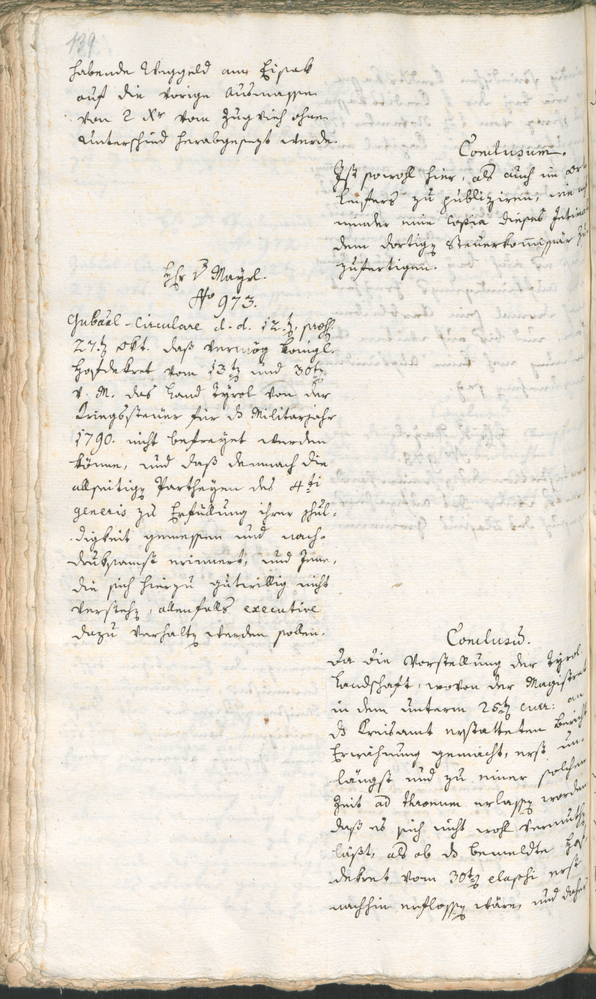 139.
habende Weggeld am Eisak
auf die vorige Ausmasse
von 2 Xr vom Zugvieh ohne
Unterschied herabgesezt werde.
Conclusum.
Ist sowohl hier, als auch im
zu publiziren, wie
minder eine Copia dieses
dem dortigen Steuerkommissär
zufertigen.
Hr v Mayrl.
No 973.
Gubal-Circulare d. d. 12.t prs.
27.t Okt. daß vermög
Hofdekret vom 13ten und 30ten
v. M. das Land Tyrol von der
Kriegssteuer für ds Militarjahr
1790. nicht befreyet werden
könne, und daß demnach die
allseitigen Partheyen des 4ti
generis zu Erfüllung ihrer schul-
digkeit gemessen und nach-
drucksamst erinnert, und Jene,
die sich hierzu gutwillig nicht
verstehen, allenfalls executive
dazu verhalten werden sollen.
Conclusum.
Da die Vorstellung der Tyrol.
Landschaft, wovon der Magistrat
in dem unterm 25ten curr: an
ds Kreisamt erstatteten Bericht
Erwähnung gemacht, erst un-
längst und zu einer solchen
Zeit ad thronum erlassen worden
daß es sich nicht wohl vermuthen
läßt, als ob ds bemeldte Hof-
dekret vom 30ten elapsi erst
nachhin erflossen wäre, und daher